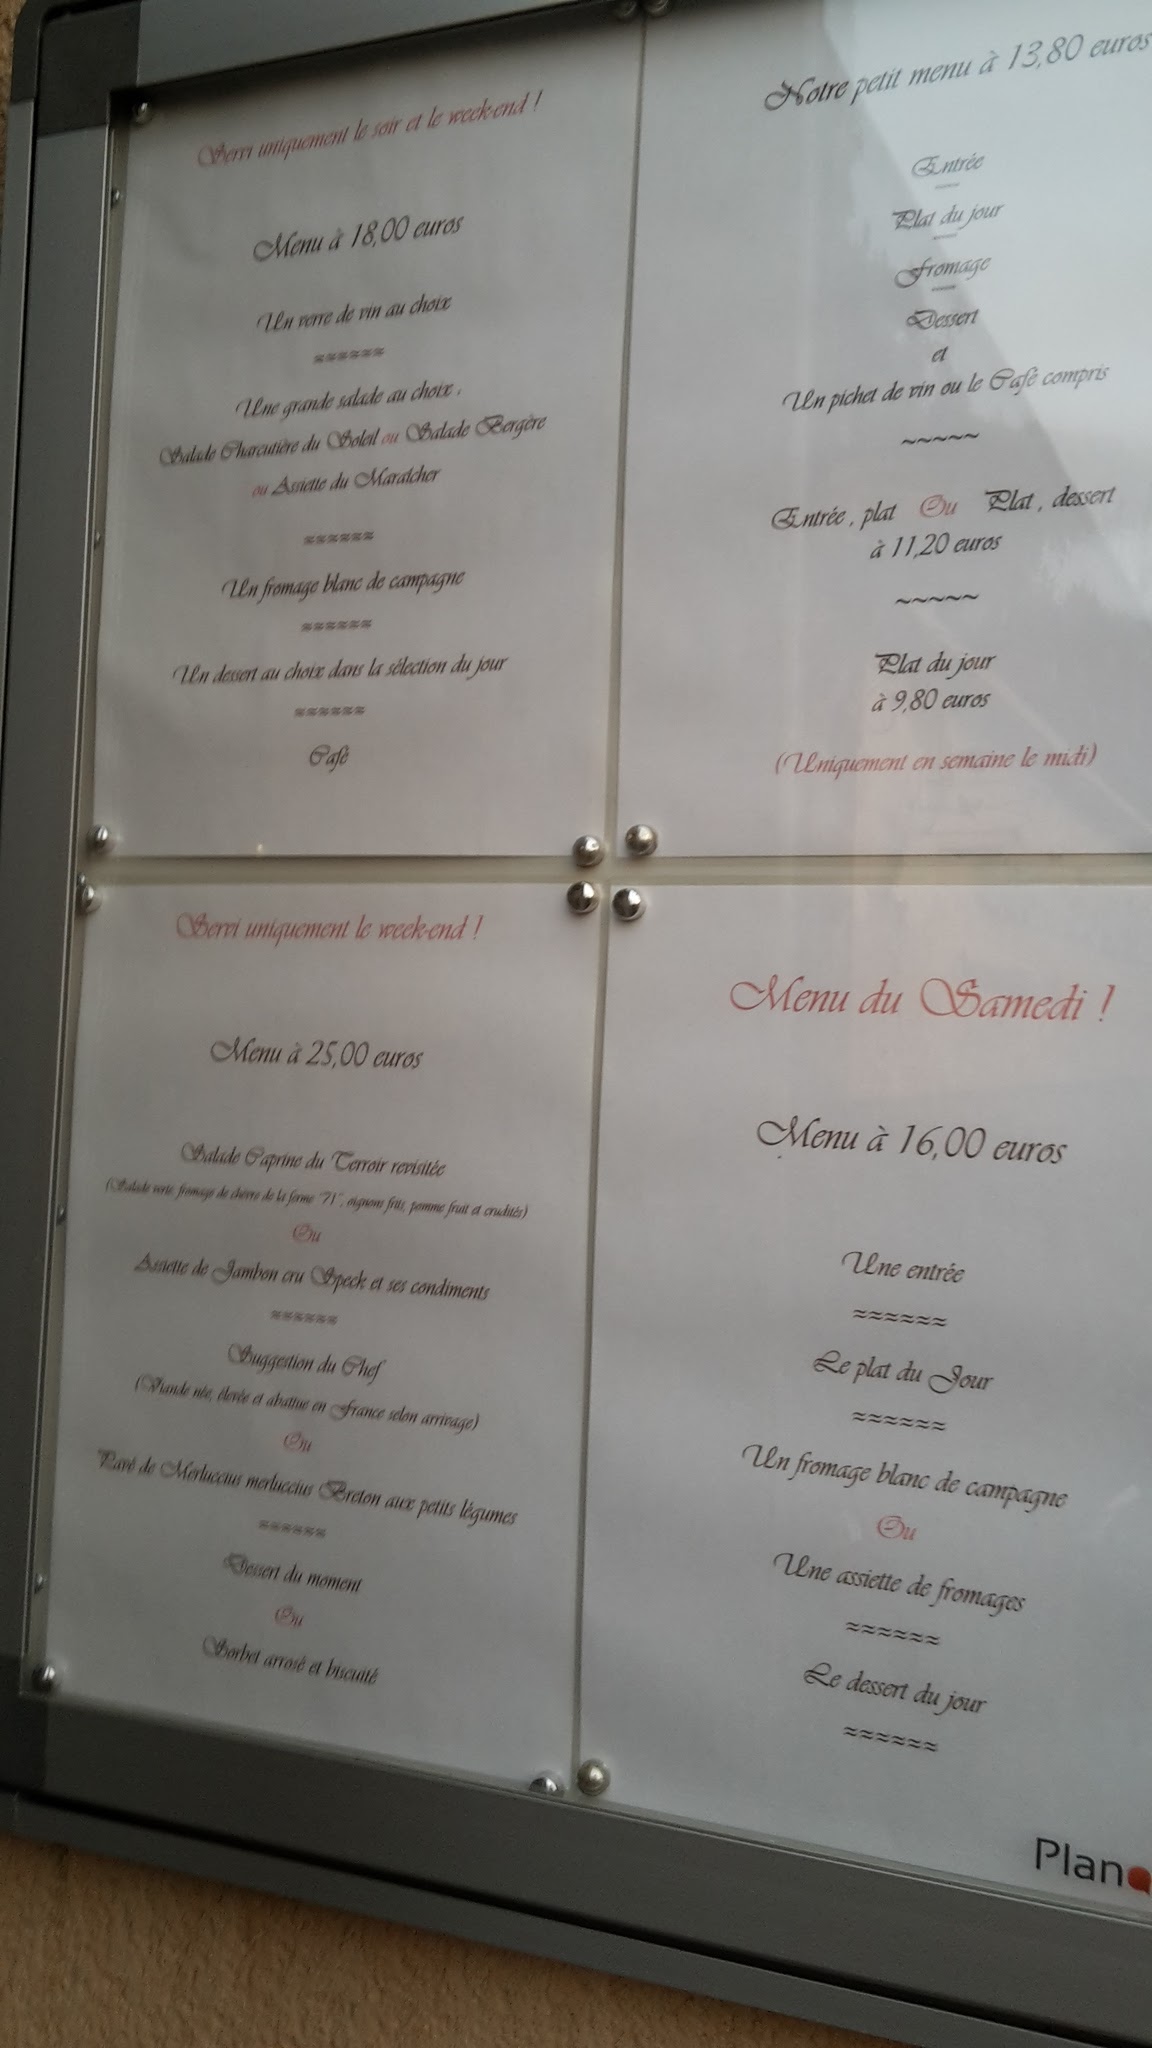 Servi uniquement le soir et le week-end !
Menu à 18,00 euros
Un verre de vin au choix
≈≈≈≈≈≈
Une grande salade au choix :
Salade Charcutière du Soleil ou Salade Bergère
ou Assiette du Maraîcher
≈≈≈≈≈≈
Un fromage blanc de campagne
≈≈≈≈≈≈
Un dessert au choix dans la sélection du jour
≈≈≈≈≈≈
Café
Notre petit menu à 13,80 euros
Entrée
~~~~~
Plat du jour
~~~~~
Fromage
~~~~~
Dessert
et
Un pichet de vin ou le Café compris
~~~~~
Entrée, plat Ou Plat, dessert
à 11,20 euros
~~~~~
Plat du jour
à 9,80 euros
(Uniquement en semaine le midi)
Servi uniquement le week-end !
Menu à 25,00 euros
Salade Caprine du Terroir revisitée
(Salade verte, fromage de chèvre de la ferme "71", oignons frits, pomme fruit et crudités)
Ou
Assiette de Jambon cru Speck et ses condiments
≈≈≈≈≈≈
Suggestion du Chef
(Viande née, élevée et abattue en France selon arrivage)
Ou
Pavé de Merluccius merluccius Breton aux petits légumes
≈≈≈≈≈≈
Dessert du moment
Ou
Sorbet arrosé et biscuité
Menu du Samedi !
Menu à 16,00 euros
Une entrée
≈≈≈≈≈≈
Le plat du Jour
≈≈≈≈≈≈
Un fromage blanc de campagne
Ou
Une assiette de fromages
≈≈≈≈≈≈
Le dessert du jour
≈≈≈≈≈≈
Plan